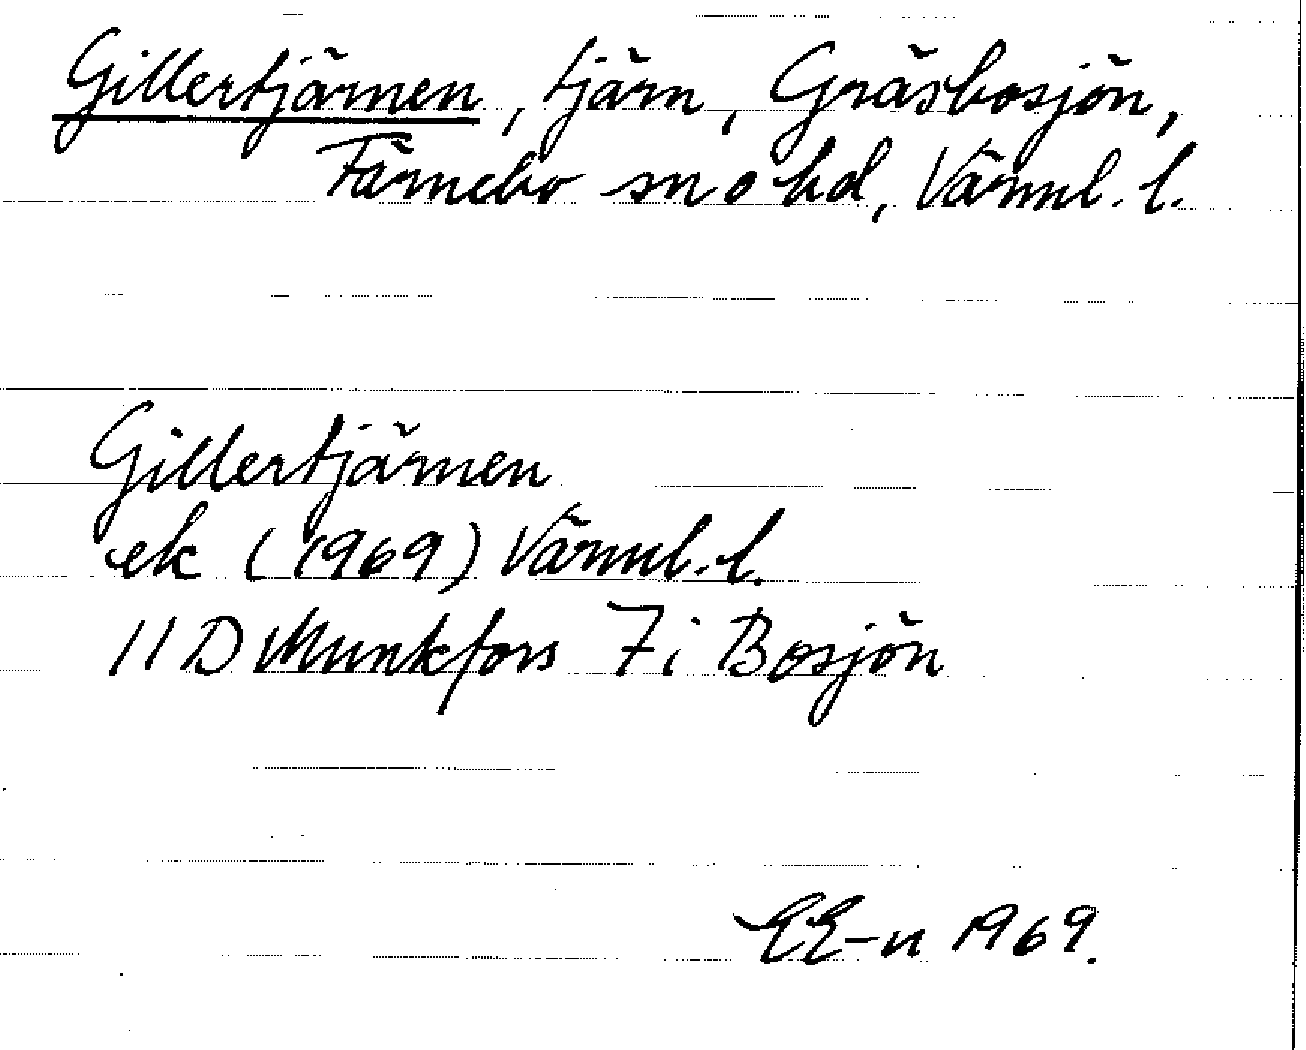 Gillertjärnen, tjärn, Gräsbosjön,
Färnebo sn o hd, Värml. l.
Gillertjärnen
ek (1969) Värml. l.
11 D Munkfors 7 i Bosjön
EE-n 1969.